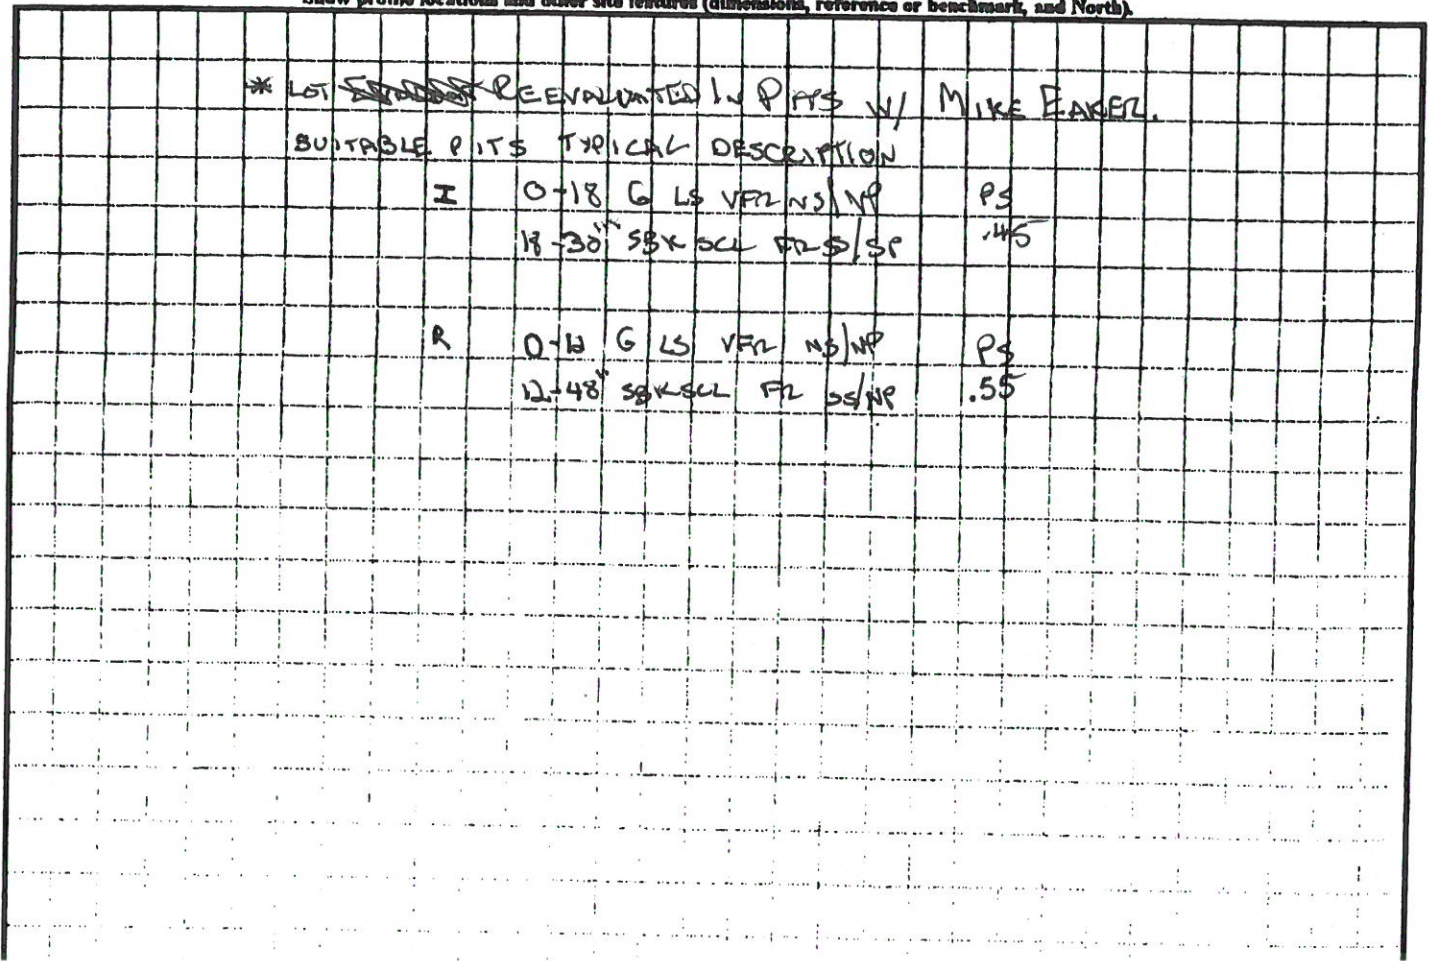 Show profile locations and other site features (dimensions, reference or benchmark, and North).
* LOT REEVALUATED IN PITS W/ MIKE EAKER.
SUITABLE PITS TYPICAL DESCRIPTION
I 0-18 G LS VFR NS/NP PS
18-30" SBK SCL FR SS/SP .45
R 0-12 G LS VFR NS/NP PS
12-48" SBK SCL FR SS/NP .55